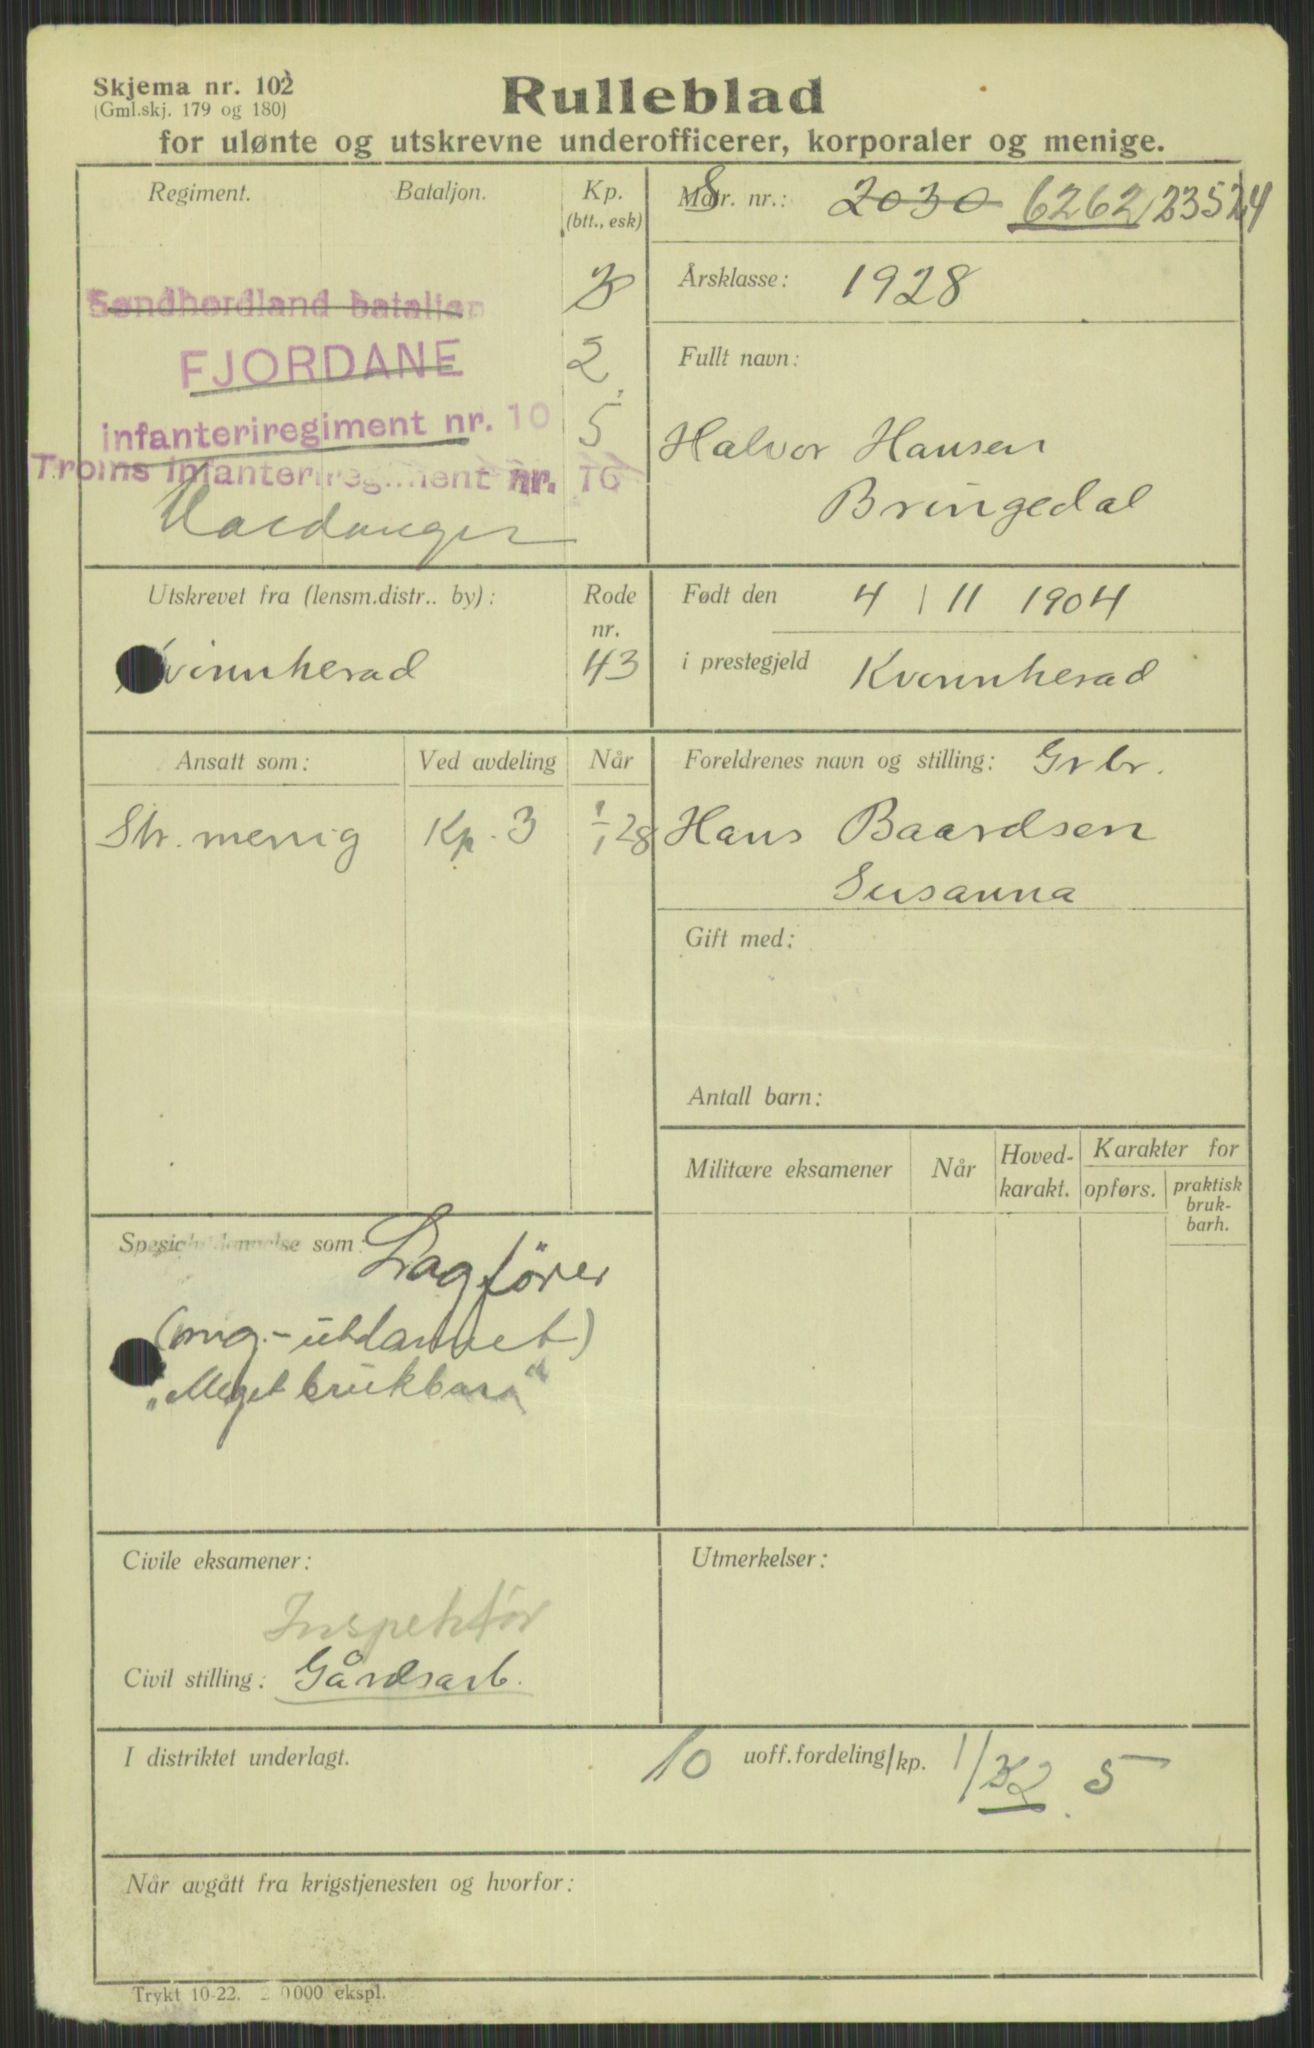 Skjema nr. 102
(Gml.skj. 179 og 180)
Rulleblad
for ulønte og utskrevne underofficerer, korporaler og menige.
Regiment. Bataljon. Kp.
(btt., esk)
Søndhordland bataljon 3
FJORDANE 2
infanteriregiment nr. 10 5
Troms infanteriregiment nr. 16
Hardanger
Matr. nr.: 2030 6262 23524
Årsklasse: 1928
Fullt navn:
Halvor Hansen
Bringedal
Utskrevet fra (lensm.distr.. by): Rode
nr.
Kvinnherad 43
Født den 4 / 11 1904
i prestegjeld Kvinnherad
Ansatt som: Ved avdeling Når
Str. menig Kp. 3 1/1 28
Foreldrenes navn og stilling: Grbr.
Hans Baardsen
Susanna
Gift med:
Antall barn:
Militære eksamener Når Hoved-
karakt. Karakter for
opførs. praktisk
bruk-
barh.
som: Lagfører
(mg.-utdannet)
„Meget brukbar"
Civile eksamener:
Inspektør
Civil stilling: Gårdsarb.
Utmerkelser:
I distriktet underlagt. 10 uoff.fordeling/kp. 1/K2 5
Når avgått fra krigstjenesten og hvorfor:
Trykt 10-22. 20000 ekspl.